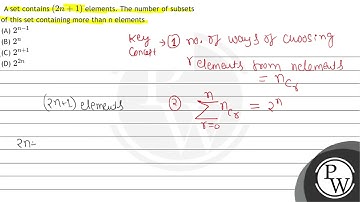 A set contains (2n + 1) elements. The number of subsets
of this set containing more than n elements.
(A) 2^{n-1}
(B) 2^n
(C) 2^{n+1}
(D) 2^{2n}
Key Concept → ① no. of ways of choosing
r elements from n elements
= nC_r
② \sum_{r=0}^{n} nC_r = 2^n
(2n+1) elements
2n=
PW